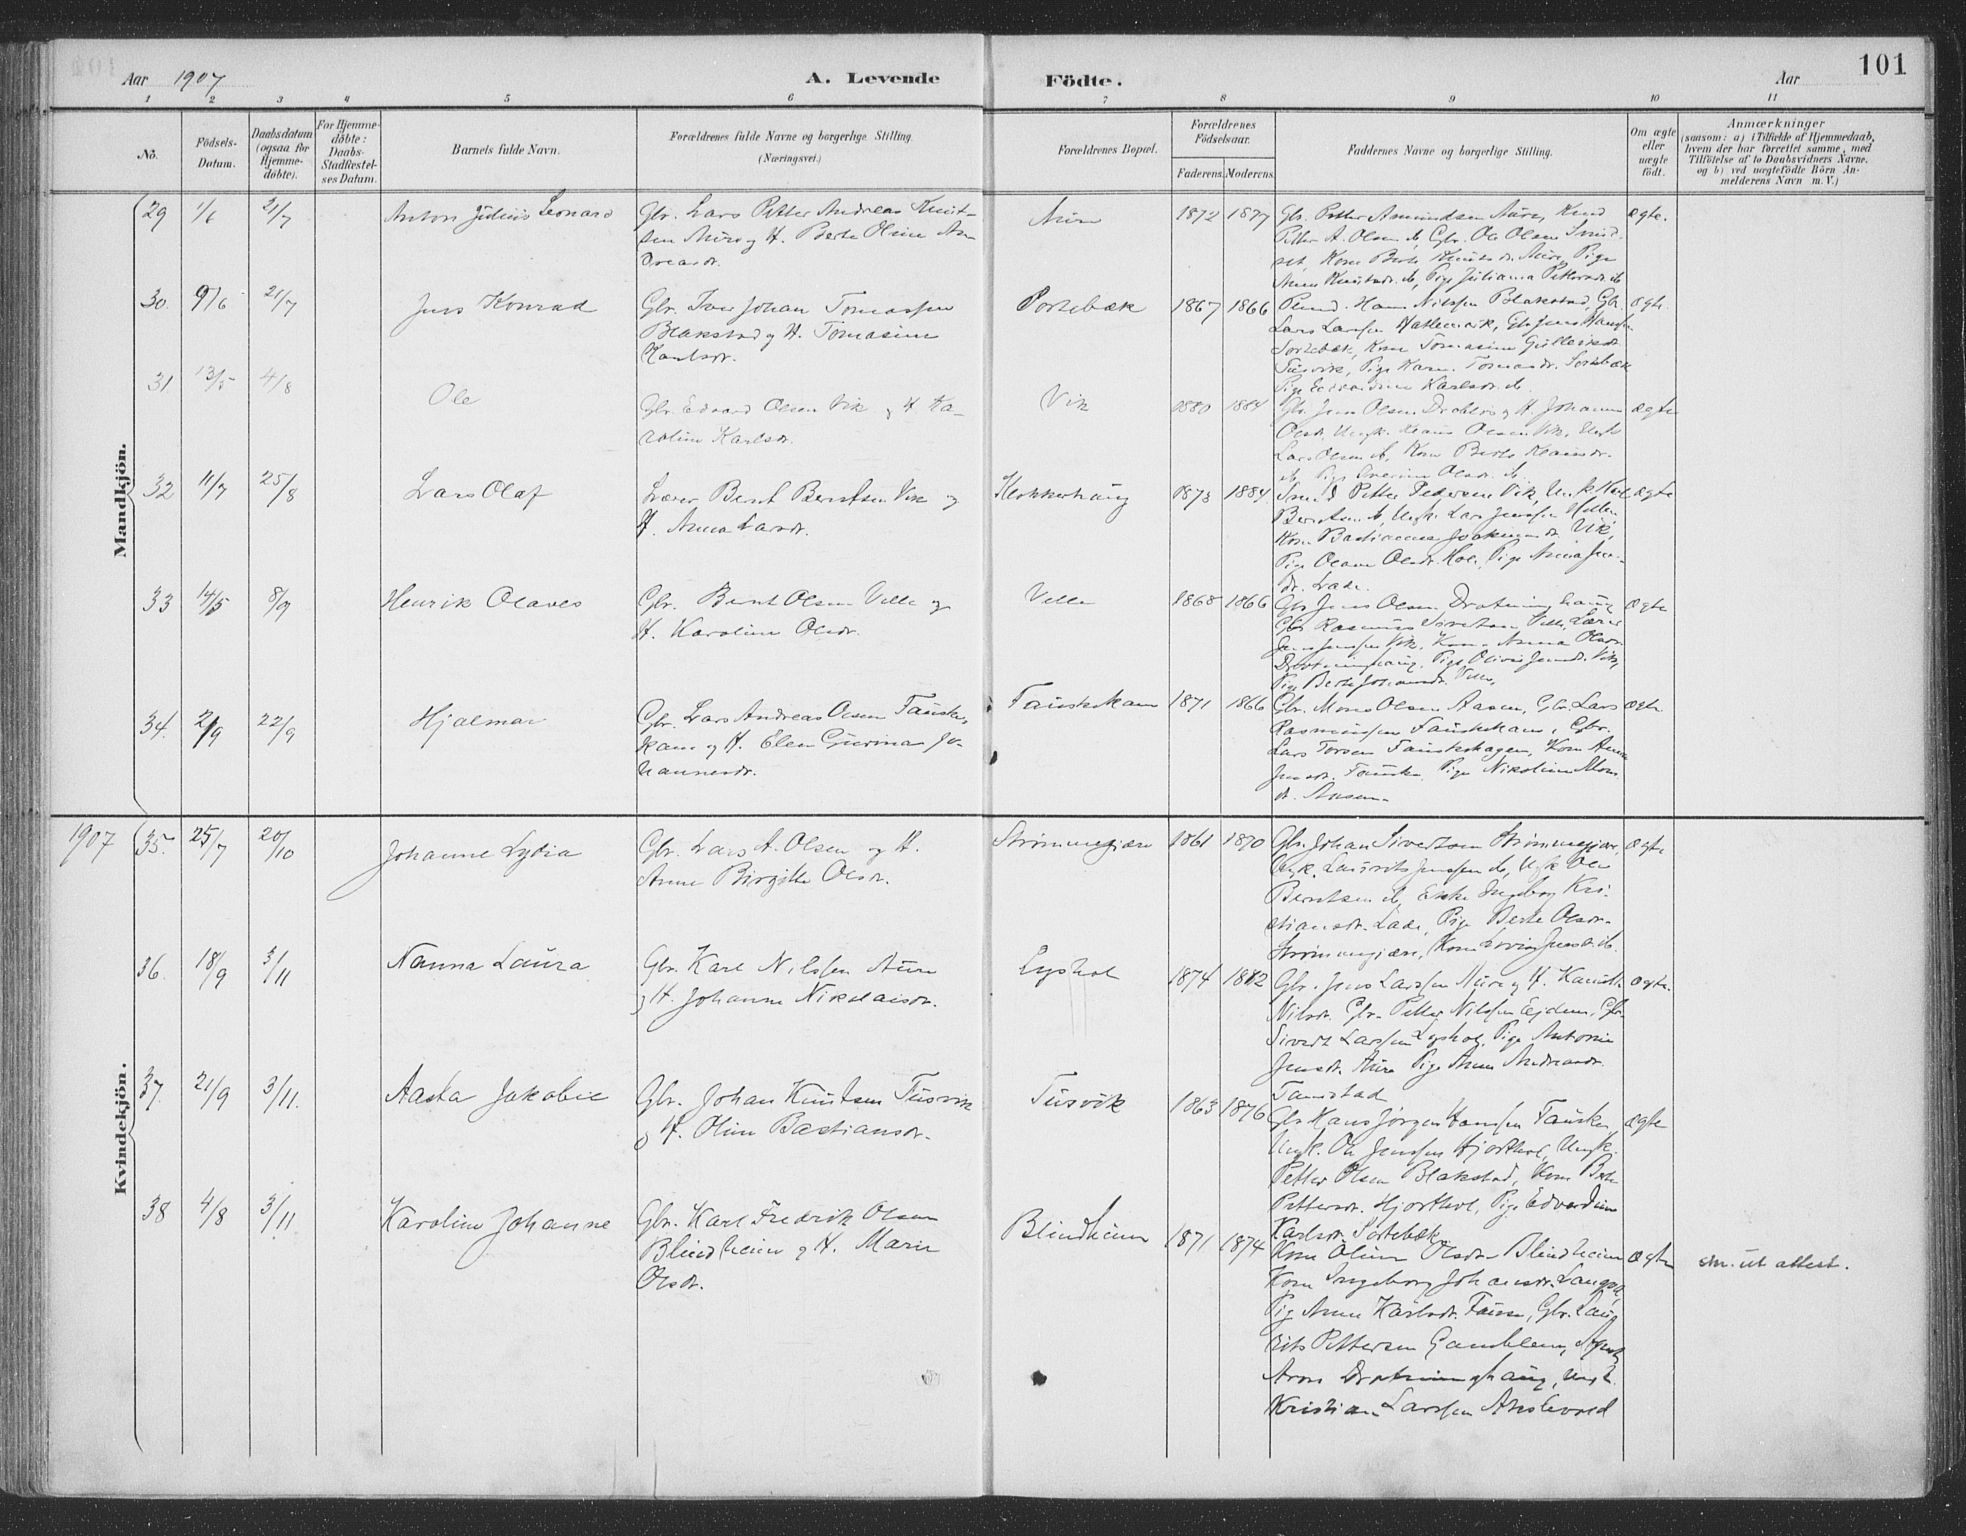 Aar 1907
A. Levende
Födte.
Aar
101
1 2 3 4 5 6 7 8 9 10 11
No.
Födsels-
Datum.
Daabsdatum
(ogsaa for
Hjemme-
döbte).
For Hjemme-
döbte:
Daabs-
Stadfæstel-
ses Datum.
Barnets fulde Navn.
Forældrenes fulde Navne og borgerlige Stilling.
(Næringsvei.)
Forældrenes Bopæl.
Forældrenes
Födselsaar.
Faderens. Moderens.
Faddernes Navne og borgerlige Stilling.
Om ægte
eller
uægte
født.
Anmærkninger
(saasom: a) i Tilfælde af Hjemmedaab,
hvem der har forrettet samme, med
Tilföielse af to Daabsvidners Navne.
og b) ved uægtefödte Börn An-
melderens Navn m. V.)
Mandkjön.
29 1/6 21/7 Anton Julius Leonard
Gbr. Lars Petter Andreas Knut-
sen Aure og H. Berte Oline An-
dreasdr.
Aure 1872 1877
Gbr. Petter Amundsen Aure, Knud
Petter A. Olsen do, Gbr. Ole Olsen
Kone Berte Knutsdr. Aure, Pige
Anne Knutsdr. do, Pige Juliana Pettersdr. do
ægte.
30. 9/6 21/7 Jens Konrad
Gbr. Iver Johan Tomassen
Blakstad og H. Tomasine
Karlsdr.
Sortebæk 1867 1866
Hans Nilssen Blakstad, Gbr.
Lars Larssen Hatlemark, Gbr. Jens Hanssen
Sortebæk, Kone Tomasine
Tusvik, Pige Karen Tomasdr. Sortebæk
Pige Edvardine Karlsdr. do.
ægte.
31. 13/5 4/8 Ole
Gbr. Edvard Olsen Vik og H. Ka-
roline Karlsdr.
Vik 1880 1884
Gbr. Jens Olsen og H. Johanne
Olsdr. Ungk. Klaus Olsen Vik, Ungk.
Lars Olsen do, Kone Berte
do, Pige Severine Olsdr. do.
ægte
32 11/7 25/8 Lars Olaf
Lærer Bernt Berntsen Vik og
H. Anna Larsdr.
Klokkerhaug 1873 1884
Petter Pedersen Vik, Ungk. Karl
Berntsen do, Ungk. Lars Jenssen
Kone Bastianna Joakimsdr. Vik,
Pige Olave Olsdr. Hole, Pige Anna Jens-
dr. Lade.
ægte
33 14/5 8/9 Henrik Olaves
Gbr. Bernt Olsen Velle og
H. Karoline Olsdr.
Velle 1868 1866
Gbr. Jens Olsen Drotninghaug
Gbr. Rasmus Sivertsen Velle, Lærer
Jens Jenssen Vik, Kone Anna Olsdr.
Drotninghaug, Pige Olivie Jensdr. Vik,
Pige Berte Johannesdr. Velle.
ægte
34. 2/9 22/9 Hjalmar
Gbr. Lars Andreas Olsen Fauske-
kam og H. Elen Gurina Jo-
hannesdr.
Fauskekam 1871 1866
Gbr. Mons Olsen Aasen, Gbr. Lars
Rasmussen Fauskekam, Gbr.
Lars Torsen Fauskehagen, Kone Anna
Jensdr. Fauske, Pige Nikoline Mons
dr. Aasen.
ægte
Kvindekjön.
1907
35. 25/7 20/10 Johanne Lydia
Gbr. Lars A. Olsen og H.
Anne Birgitte Olsdr.
Strømmegjære 1861 1870
Gbr. Johan Sivertsen Strømmegjære,
Ungk. Laurits Jenssen do, Ungk. Ole
Berntsen do, Enke Ingeborg Kri-
stiansdr. Lade, Pige Berte Olsdr.
Strømmegjære, Kone Lovise Jensdr. do.
ægte
36. 18/9 3/11 Nanna Laura
Gbr. Karl Nilssen Aure
og H. Johanne Nikolaisdr.
Lyshol 1874 1882
Gbr. Jens Larssen Aure og H.
Nilsdr. Gbr. Petter Nilssen Ejdem, Gbr.
Sivert Larssen Lyshol, Pige Antonie
Jensdr. Aure Pige Anne Andreasdr.
Tandstad
ægte.
37. 21/9 3/11. Aasta Jakobie
Gbr. Johan Knutsen Tusvik
og H. Oline Bastiansdr.
Tusvik 1863 1876
Gbr. Hans Jørgen Hanssen Fauske,
Ungk. Ole Jenssen Hjorthol, Ungk.
Petter Olsen Blakstad, Kone Berte
Pettersdr. Hjorthol, Pige Edvardine
Karlsdr. Sortebæk.
ægte
38 4/8 3/11 Karoline Johanne
Gbr. Karl Fredrik Olsen
Blindheim og H. Marie
Olsdr.
Blindheim 1871 1874
Kone Oline Olsdr. Blindheim
Kone Ingeborg Johansdr.
Pige Anne Karlsdr. Gbr. Lau-
rits Pettersen Gamblem,
Drotninghaug, Ungk.
Kristian Larssen
ægte
ut attest.